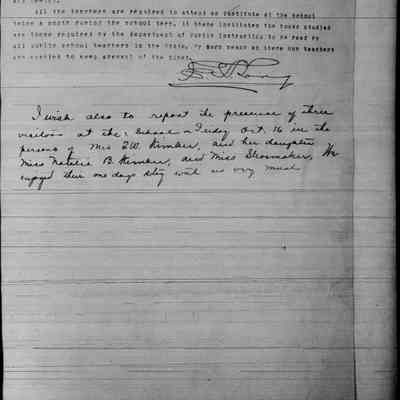 All the teachers are required to attend an institute at the school
twice a month during the school term. At these institutes the books studied
are those required by the Department of Public Instruction to be read by
all public school teachers in the State. By such means as these our teachers
are enabled to keep abreast of the times.
I wish also to report the presence of three
visitors at the School on Friday Oct. 16 in the
persons of Mrs T.W. Kimber, and her daughter
Miss Natalie B. Kimber, and Miss Shoemaker. We
enjoyed their one days stay with us very much